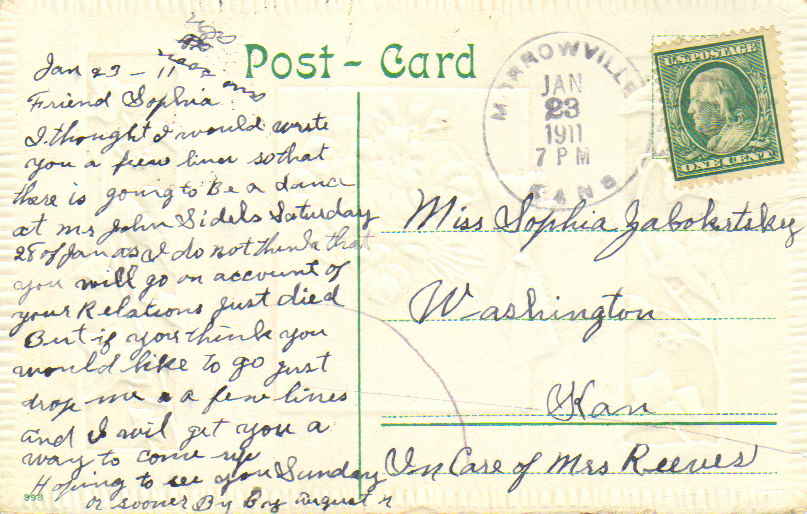 Post - Card
Jan 23 - 11
Friend Sophia
I thought I would write
you a few lines so that
there is going to Be a dance
at mr John Sidels Saturday
28 of Jan as I do not think that
you will go on account of
your Relations just died
But if you think you
would like to go just
drop me a few lines
and I wil get you a
way to come up
Hoping to see you Sunday
or sooner By By August
MORROWVILLE
JAN
23
1911
7 PM
KANS
U.S. POSTAGE
ONE CENT
Miss Sophia Zabokrtsky
Washington
Kan
In Care of Mrs Reeves